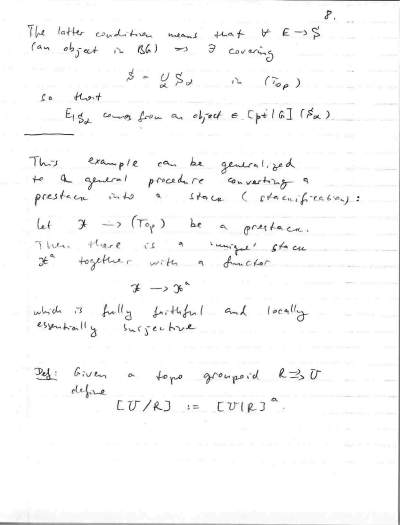 8.
The latter condition means that ∀ E → S
(an object in BG) ⇒ ∃ covering
S = ∪_α S_α in (Top)
so that
E|S_α comes from an object ∈ [pt|G](S_α)
This example can be generalized
to a general procedure converting a
prestack into a stack (stacification):
let X → (Top) be a prestack.
Then there is a 'unique' stack
X^a together with a functor
X → X^a
which is fully faithful and locally
essentially surjective
Def: Given a topo groupoid R ⇉ U
define
[U/R] := [U|R]^a.